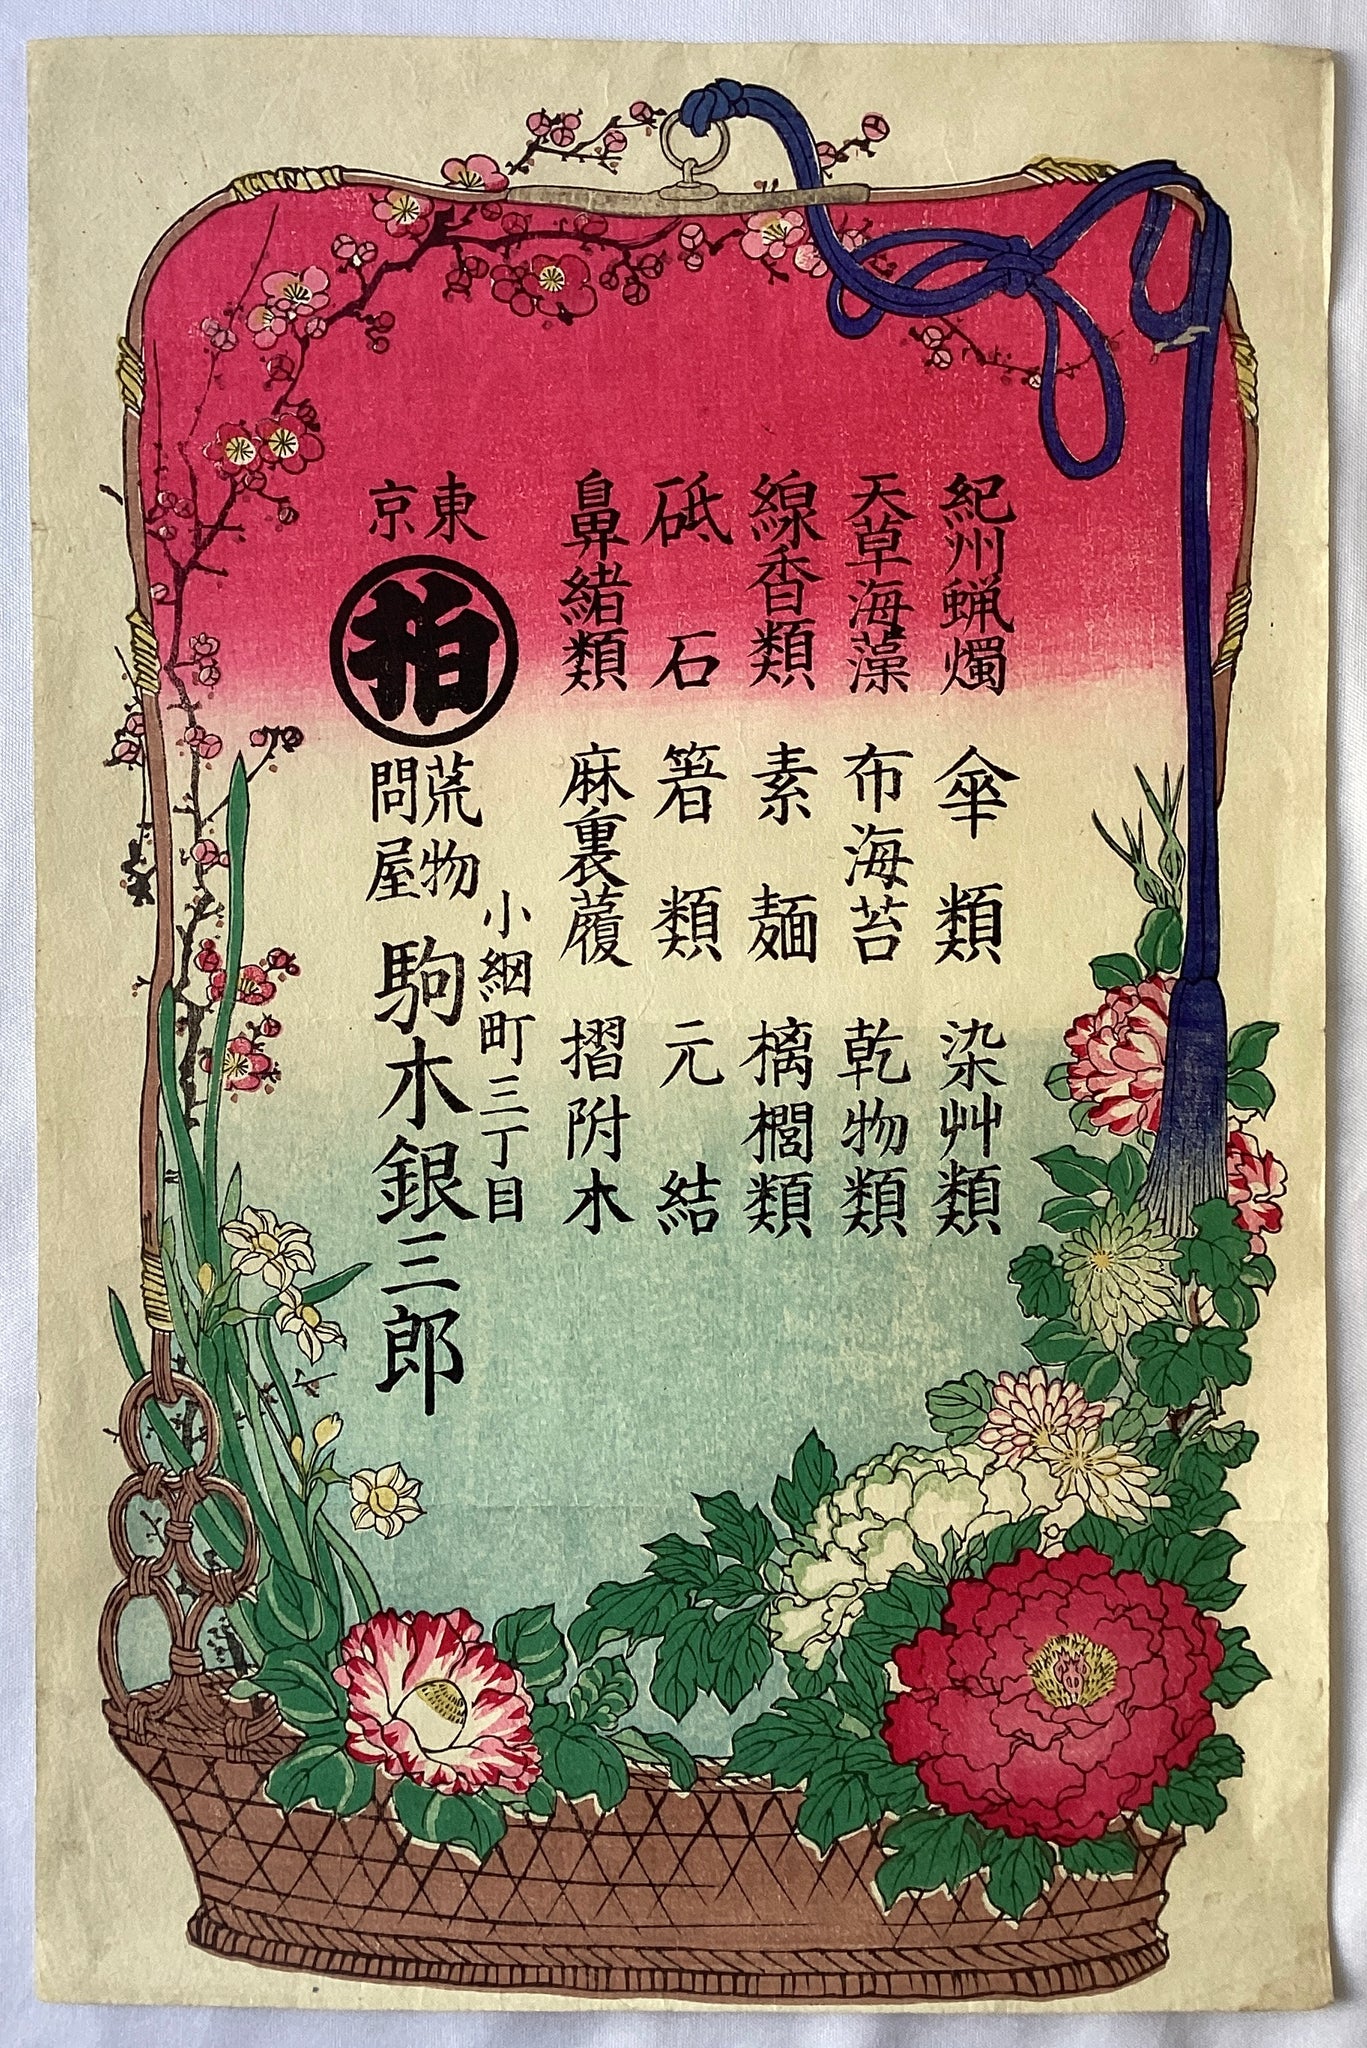 紀州蝋燭 傘類 染艸類
天草海藻 布海苔 乾物類
線香類 素麺 樆櫊類
砥石 箸類 元結
鼻緒類 麻裏履 摺附木
東京 拍 荒物問屋
小網町三丁目
駒木銀三郎